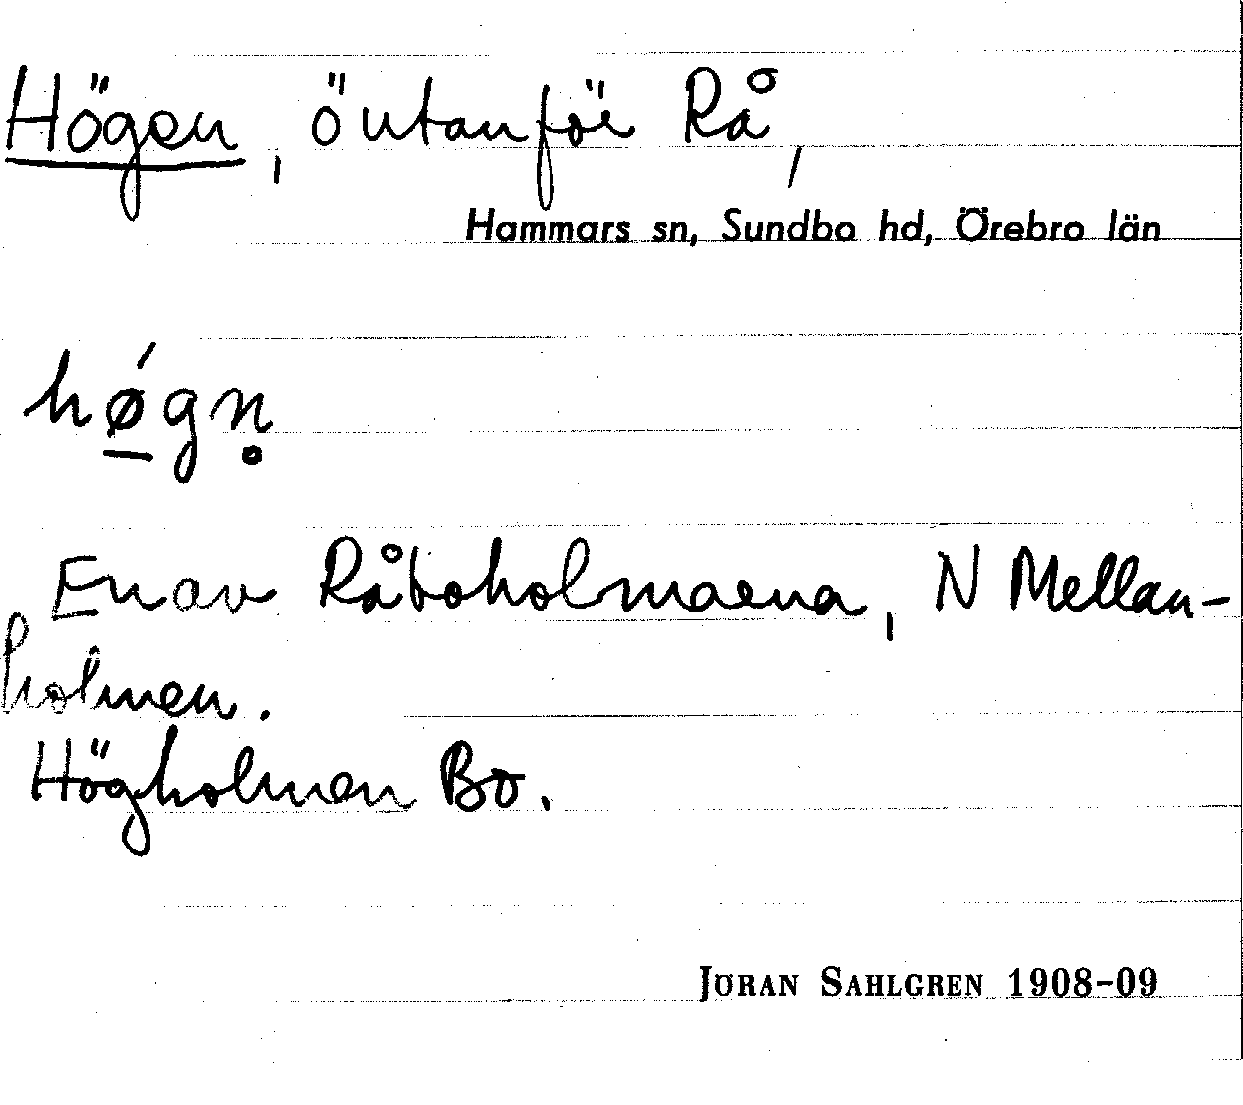 Högen, ö utanför Rå,
Hammars sn, Sundbo hd, Örebro län
hǿ̲gn̥
En av Råboholmarna, N Mellan-
holmen.
Högholmen Bo.
JÖRAN SAHLGREN 1908-09